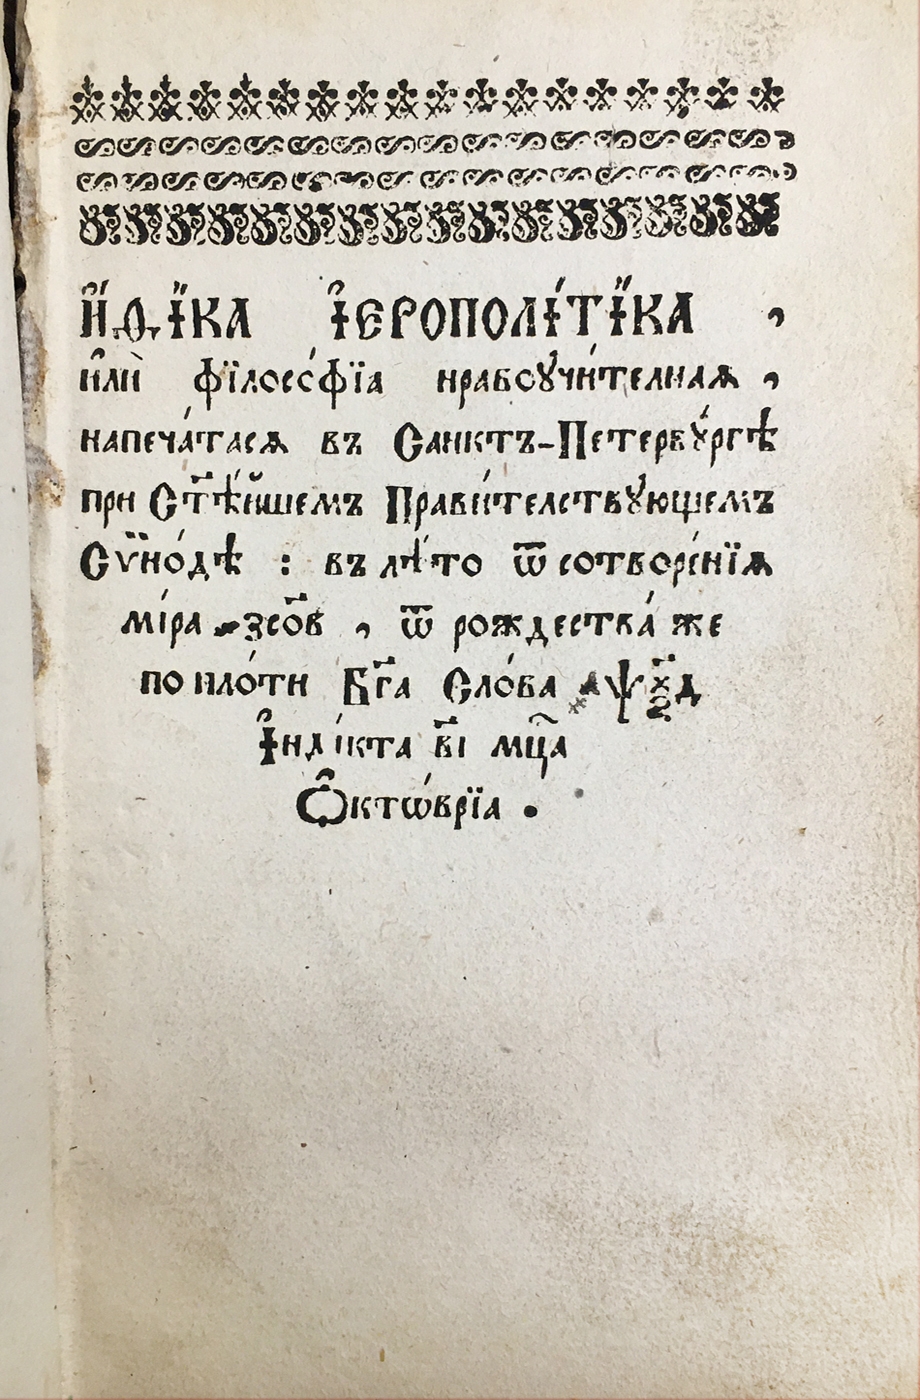 И҆́ѳїка І҆ерополі́тїка ,
и҆лѝ фїлосо́фїа нравоꙋчи́телнаѧ ,
напеча́тасѧ въ Санктъ-Петербꙋ́ргѣ
при Ст҃ѣ́йшемъ Прави́телствꙋющемъ
Сѷно́дѣ : въ лѣ́то ѿ сотворе́нїѧ
мі́ра ҂зсо҃в , ѿ рождества́ же
по пло́ти Бг҃а Сло́ва ҂аѱѯ҃д
І҆нді́кта в҃і мц҃а
Ѻ҆ктѡ́врїа .